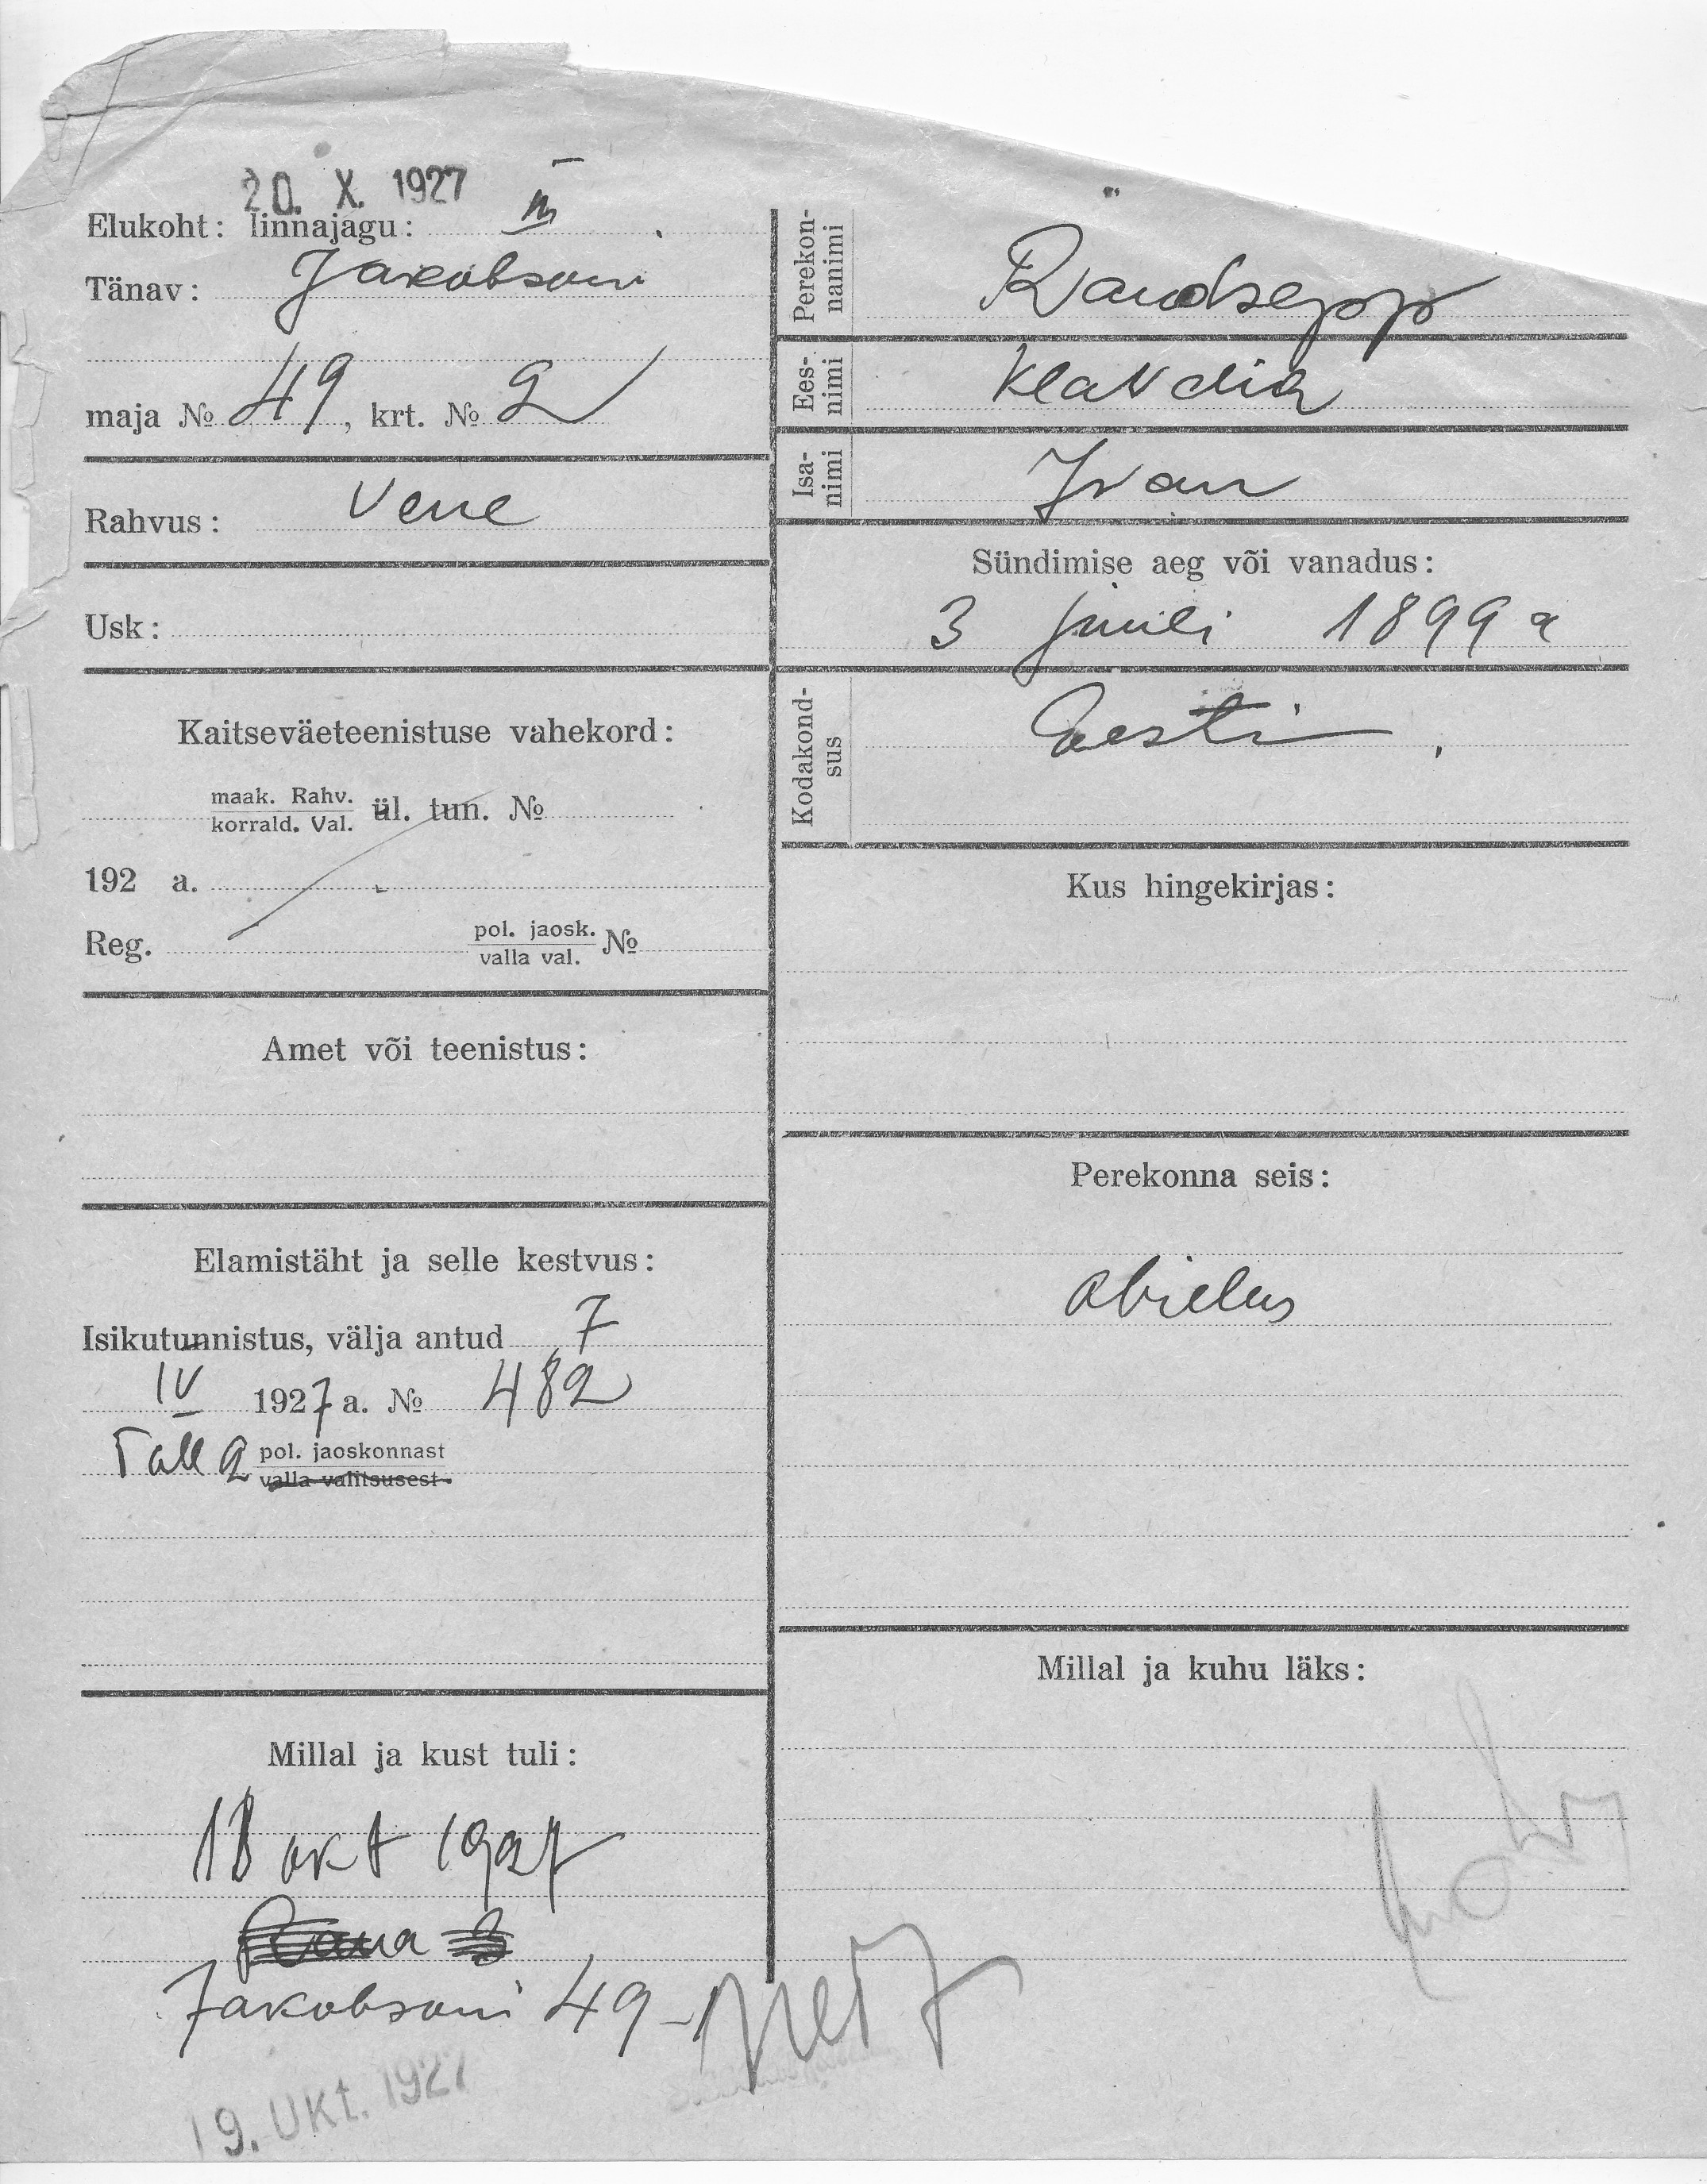 20. X. 1927
Elukoht: linnajagu: III
Tänav: Jakobsoni
maja № 49, krt. № 2
Rahvus: Vene
Usk:
Kaitseväeteenistuse vahekord:
maak. Rahv.
korrald. Val. ül. tun. №
192 a.
Reg. pol. jaosk. №
valla val.
Amet või teenistus:
Elamistäht ja selle kestvus:
Isikutunnistus, välja antud 7
IV 1927 a. № 482
Tall 2 pol. jaoskonnast
valla valitsusest
Millal ja kust tuli:
18 okt 1927
Jakobsoni 49-1
19. Okt. 1927
Perekon-
nanimi
Raudsepp
Ees-
nimi
Klavdia
Isa-
nimi
Ivan
Sündimise aeg või vanadus:
3 juuli 1899 a
Kodakond-
sus
Eesti
Kus hingekirjas:
Perekonna seis:
abielus
Millal ja kuhu läks: